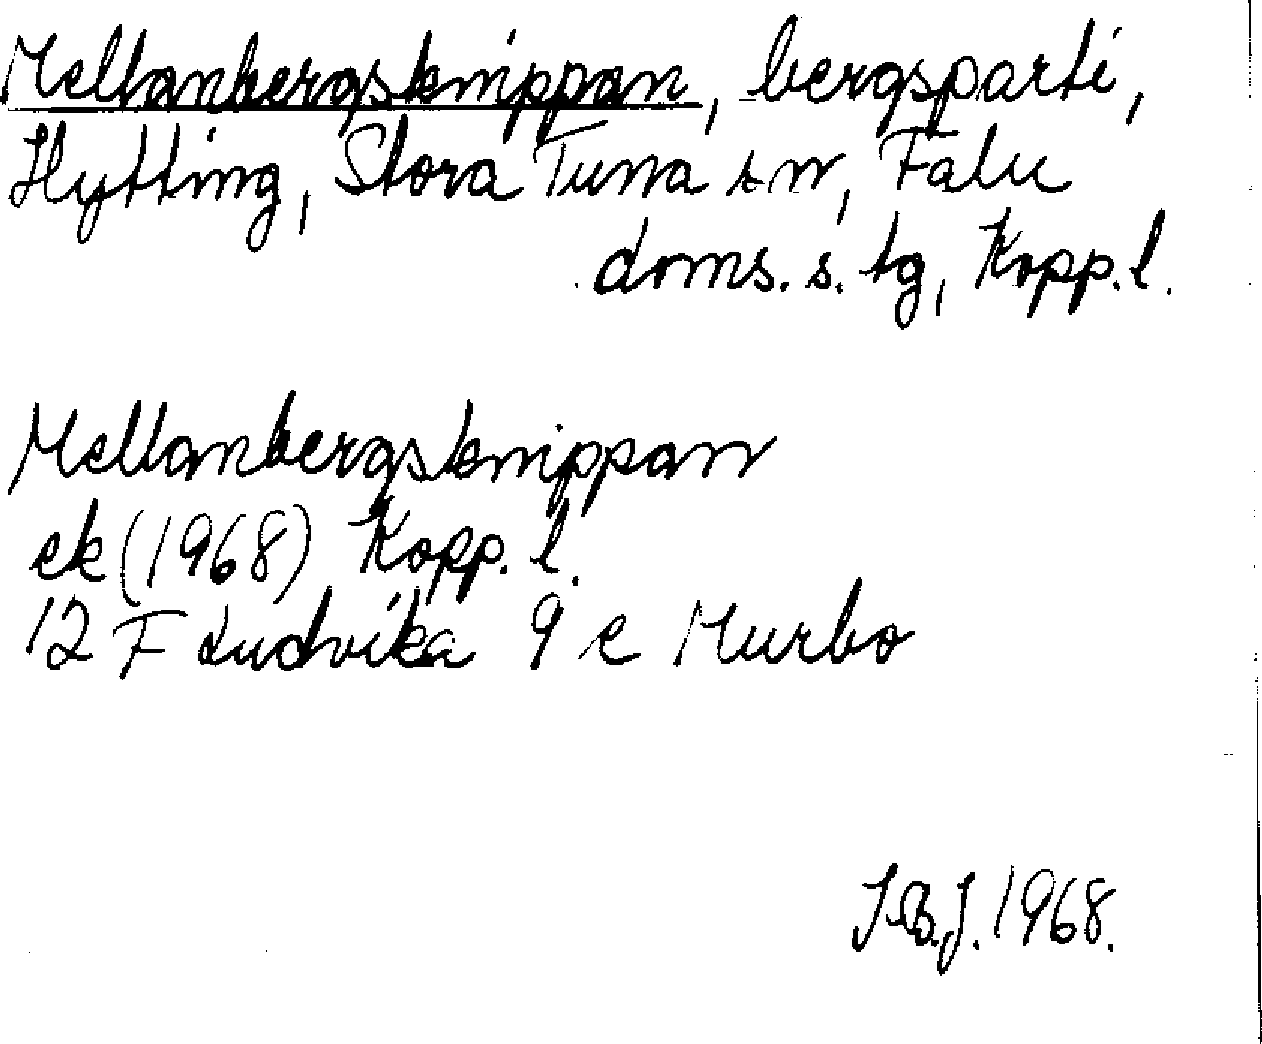 Mellanbergsknippan, bergsparti,
Hytting, Stora Tuna sn, Falu
doms. s. tg, Kopp. l.
Mellanbergsknippan
ek (1968) Kopp. l.
12 F Ludvika 9 e Murbo
J.B.J. 1968.